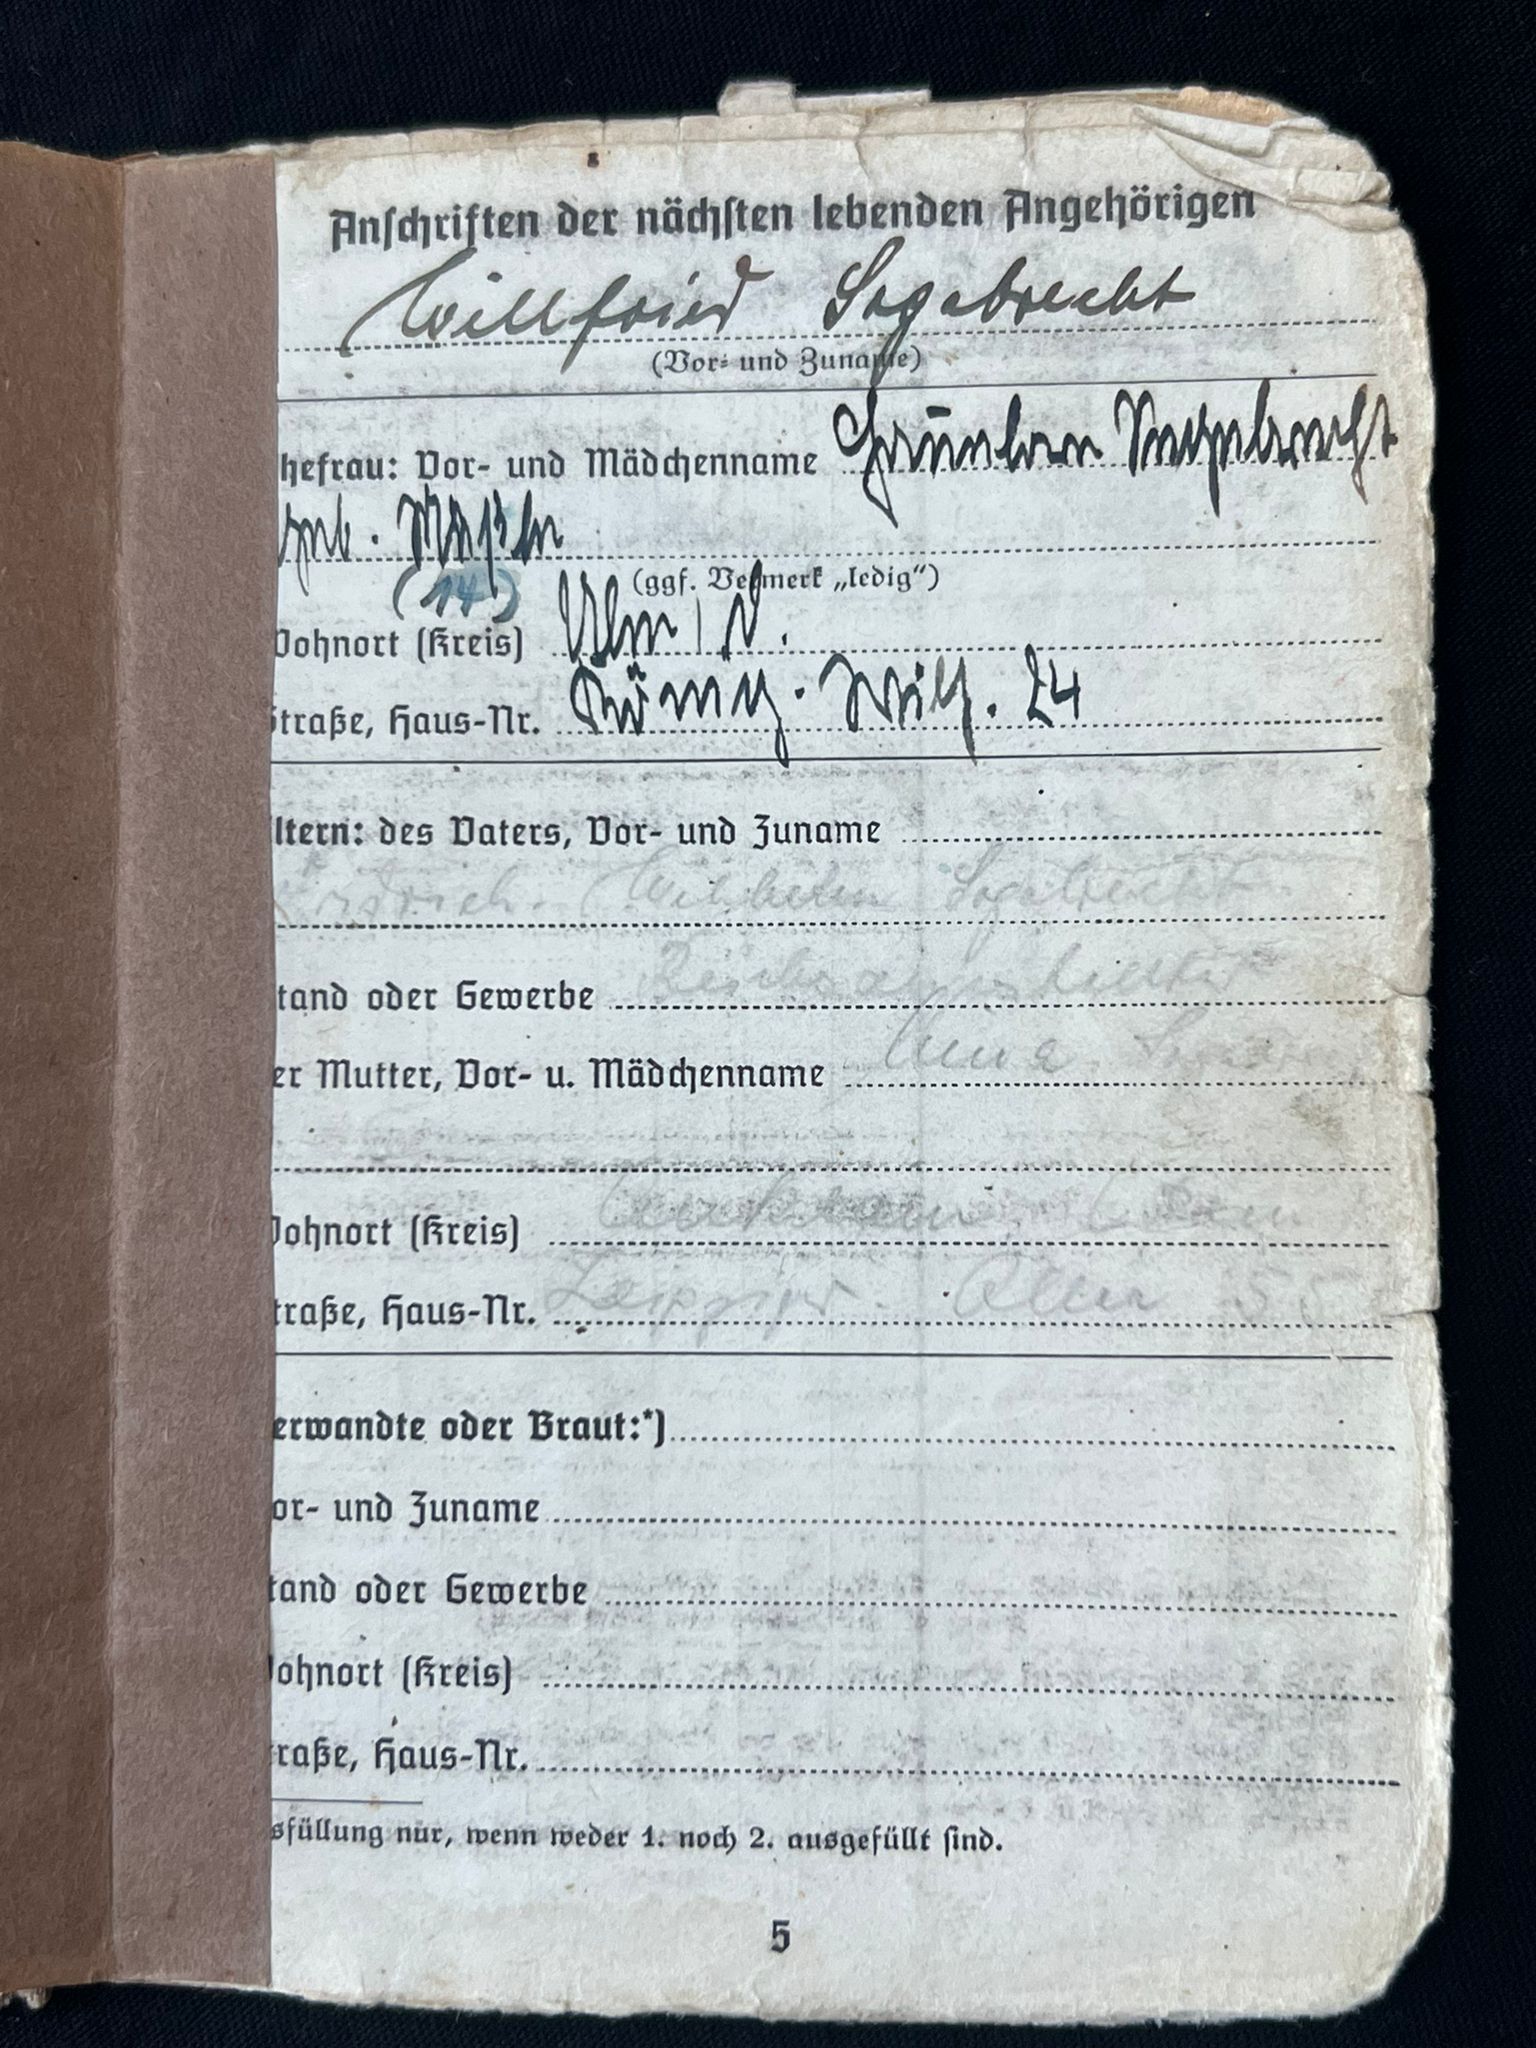 Anschriften der nächsten lebenden Angehörigen
Willfried Segebrecht
(Vor- und Zuname)
hefrau: Vor- und Mädchenname
geb.
(14)
(ggf. Vermerk „ledig“)
Wohnort (Kreis) Ulm / D.
Straße, Haus-Nr. König. Wilh. 24
ltern: des Vaters, Vor- und Zuname
Wilhelm Segebrecht
tand oder Gewerbe
er Mutter, Vor- u. Mädchenname
Wohnort (Kreis)
traße, Haus-Nr. Leipziger Allee 55
erwandte oder Braut:*)
or- und Zuname
tand oder Gewerbe
ohnort (Kreis)
raße, Haus-Nr.
sfüllung nur, wenn weder 1. noch 2. ausgefüllt sind.
5